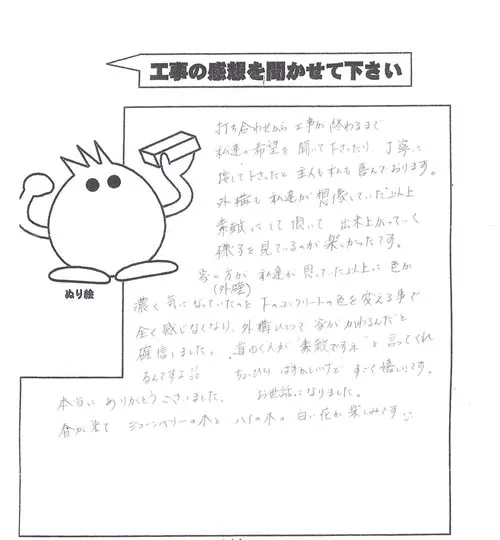 工事の感想を聞かせて下さい
打ち合わせから工事が終わるまで
私達の希望を聞いて下さったり、丁寧に
接して下さったと主人も私も喜んでおります。
外構も私達が想像していた以上
素敵にして頂いて 出来上がっていく
様子を見ているのが楽しかったです。
家の方が私達が思っていた以上に色が
(外壁)
濃く気になっていたのを下のコンクリートの色を変える事で
全く感じなくなり、外構ひとつで家がかわるんだと
確信しました。道ゆく人が"素敵ですネ"と言ってくれ
るんですよ!! ちょっぴりはずかしいけどすごく嬉しいです。
本当にありがとうございました。 お世話になりました。
春が来て ジューンベリーの木と ハナの木の 白い花が楽しみです
ぬり絵